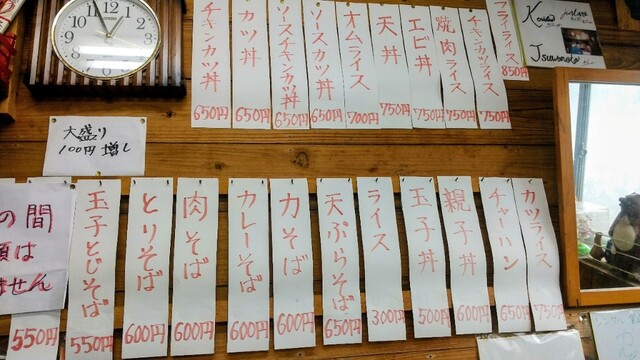 フライライス
850円
チキンカツライス
750円
焼肉ライス
750円
エビ丼
750円
天丼
750円
オムライス
700円
ソースカツ丼
650円
ソースチキンカツ丼
650円
カツ丼
650円
チキンカツ丼
650円
大盛り
100円増し
カツライス
750円
チャーハン
650円
親子丼
600円
玉子丼
500円
ライス
300円
天ぷらそば
650円
力そば
600円
カレーそば
600円
肉そば
600円
とりそば
600円
玉子とじそば
550円
550円
の間
は
ません